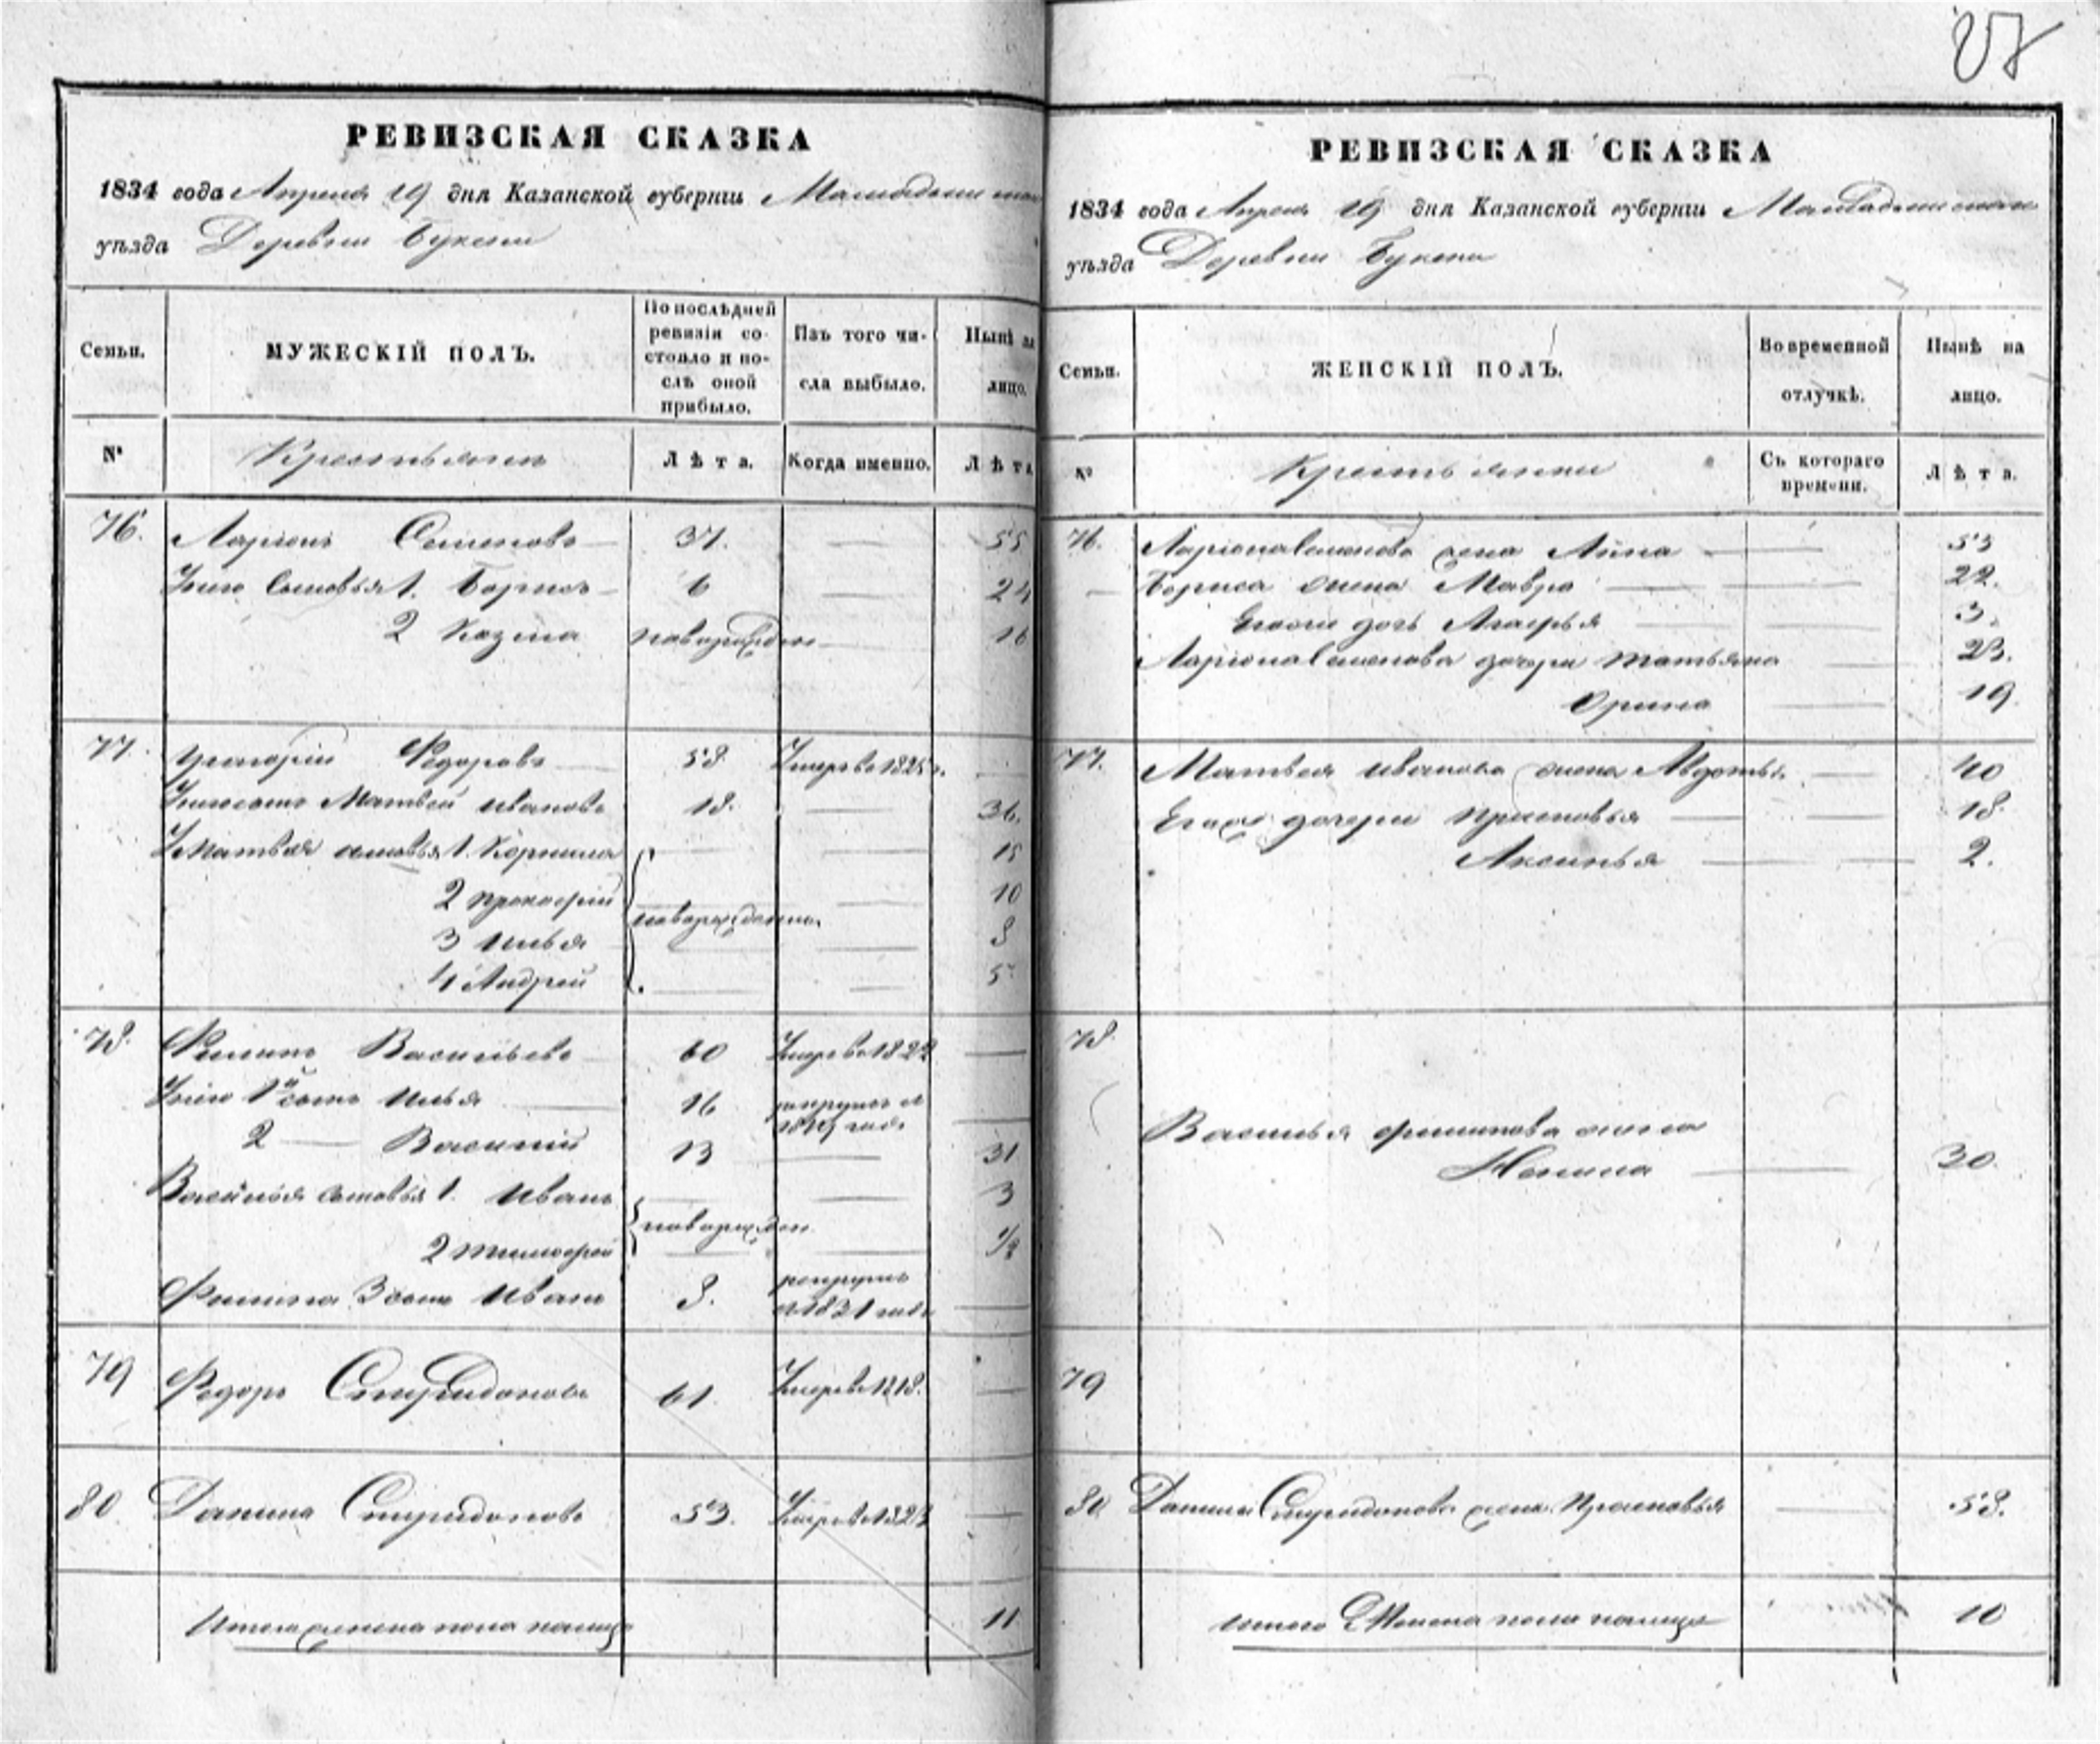 27
РЕВИЗСКАЯ СКАЗКА
1834 года Апреля 19 дня Казанской губерніи Мамадышскаго
уѣзда Деревни Букени
Семьи.
МУЖЕСКІЙ ПОЛЪ.
По послѣдней ревизіи состояло и послѣ оной прибыло.
Изъ того числа выбыло.
Нынѣ на лицо.
№
Крестьяне
Лѣта.
Когда именно.
Лѣта
76. Ларіонъ Семеновъ 37. 55
У него сыновья 1. Борисъ 6 24
2 Козма новорожден 16
77. Григорій Федоровъ 58 Умеръ в 1825 г.
Матвей Ивановъ 18. 36.
У Матвея сыновья 1. Корнила 15
2 Прокофій 10
новорожденны
3 Илья 8
4 Андрей 5
78. Филипъ Васильевъ 60 Умеръ в 1822
У него 1й сынъ Илья 16 рекрутъ в
году
2 Василий 13 31
Василья сыновья 1. Иванъ 3
новорожден
2 Тимофей 1/2
Филипа 3 сынъ Иванъ 8. рекрутъ
в 1831 году
79 Федоръ Спиридоновъ 61. Умеръ в 1818.
80 Данила Спиридоновъ 53. Умеръ в 1823
Итого пола налицо 11
РЕВИЗСКАЯ СКАЗКА
1834 года Апреля 19 дня Казанской губерніи Мамадышскаго
уѣзда Деревни Букени
Семьи.
ЖЕНСКІЙ ПОЛЪ.
Во временной отлучкѣ.
Нынѣ на лицо.
№
Крестьянки
Съ котораго времени.
Лѣта.
76. Ларіона Семенова жена Анна 53
Бориса жена Мавра 22.
Егоже дочь Агафья 3.
Ларіона Семенова дочери Татьяна 23.
Орина 19
77. Матвея Иванова жена Авдотья 40
Егоже дочери Прасковья 18.
Аксинья 2.
78
Василья Филипова жена
Ненила 30.
79
80 Данилы Спиридонова жена Прасковья 58.
Итого Женска пола налицо 10